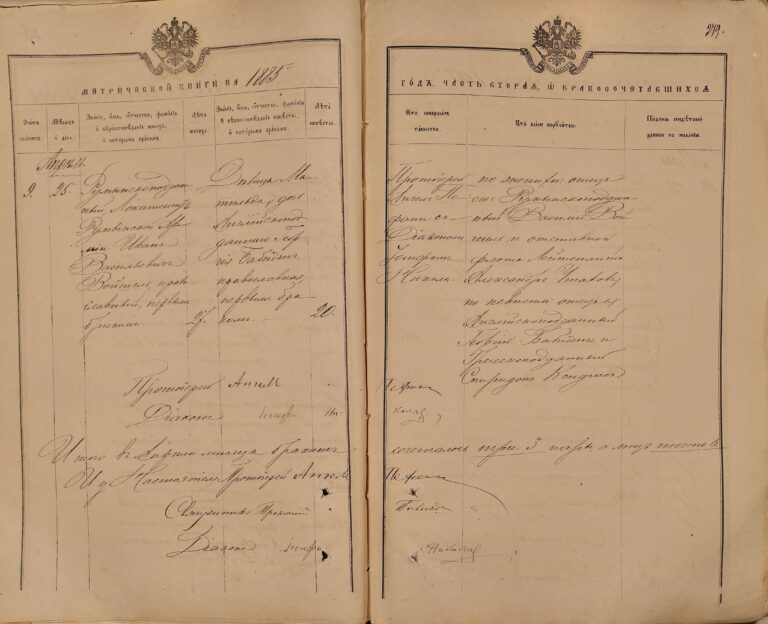 249.
МЕТРИЧЕСКОЙ КНИГИ НА 1885
ГОДЪ, ЧАСТЬ ВТОРАЯ, Ѡ БРАКОСОЧЕТАВШИХСЯ
Счетъ браковъ.
Мѣсяцъ и день.
Званіе, имя, отчество, фамилія и вѣроисповѣданіе жениха, и которымъ бракомъ.
Лѣта жениха.
Званіе, имя, отчество, фамилія и вѣроисповѣданіе невѣсты, и которымъ бракомъ.
Лѣта невѣсты.
Кто совершалъ таинство.
Кто были поручители.
Подпись свидѣтелей записи по желанію.
Апрѣль
9. 25.
Румынскоподдан
ный,
Румынской Ар
міи Иванъ
Васильевичъ
Войшелъ, право
славный, первымъ
бракомъ 27.
Дѣвица Ма
тильда, дочь
Англійскопод
даннаго Геор
гія
православная,
первымъ бра
комъ 20.
Протоіерей
Ангелъ Пе
фани съ
Діакономъ
Іосифомъ
по женихѣ отецъ
его Румынскоподдан
ный Василій Вой
шелъ и отставной
флота Лейтенантъ
Александръ Ушаковъ
по невѣстѣ отецъ ея
Англійскоподданный
и
Греческоподданный
Спиридонъ
Протоіерей Ангелъ Пефани
Діаконъ Іосифъ
Итого въ Апрѣлѣ мѣсяцѣ браковъ
сочеталось три 3 пары а лицъ шесть 6.
Настоятель Протоіерей Ангелъ Пефани
Священникъ
Діаконъ Іосифъ